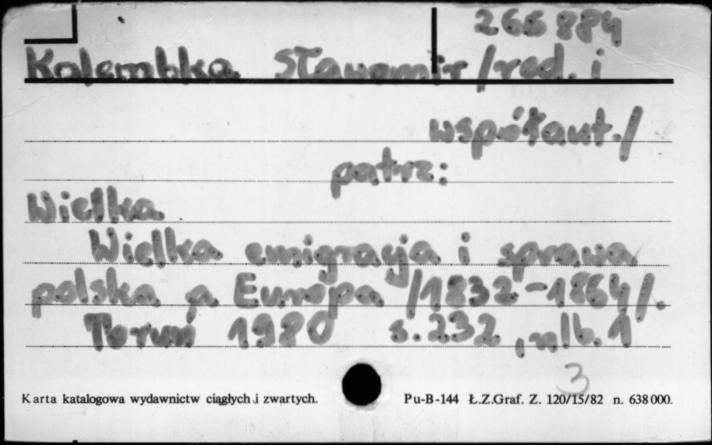 266 884
Kalembka Sławomir /red. i
współaut./
patrz:
Wielka
Wielka emigracja i sprawa
polska a Europa /1832-1864/.
Toruń 1980 s. 232, nlb. 1
3
Karta katalogowa wydawnictw ciągłych i zwartych. Pu-B-144 Ł.Z.Graf. Z. 120/15/82 n. 638 000.